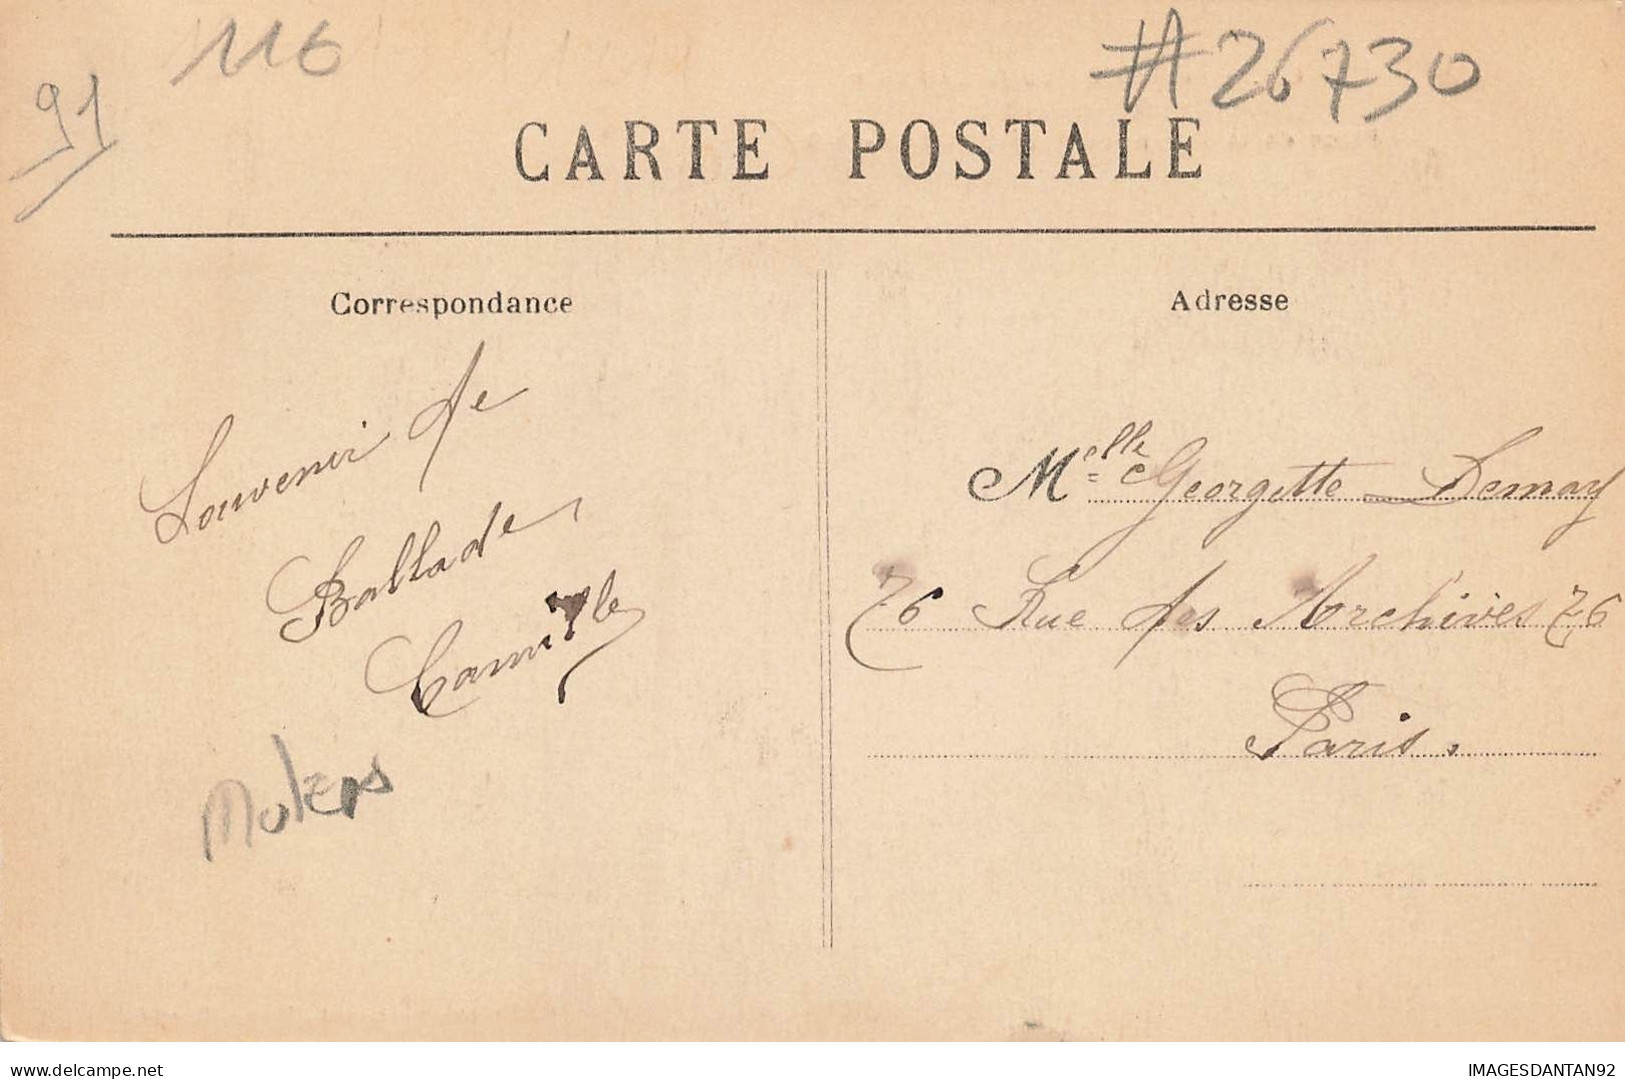 116
#26730
91
CARTE POSTALE
Correspondance
Adresse
Souvenir de
Ballade
Camille
Melle Georgette Demay
76 Rue des Archives 76
Paris.
delcampe.net
IMAGESDANTAN92